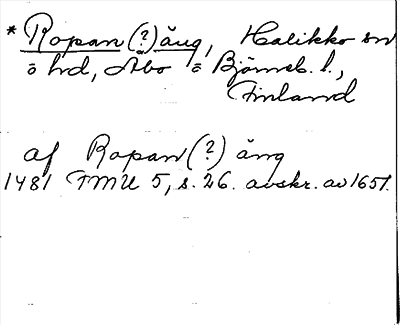 * Ropan(?)äng, Halikko sn
o hd, Åbo o Björneb. l.,
Finland
af Ropan(?) äng
1481 FMU 5, s. 26. avskr. av 1651.